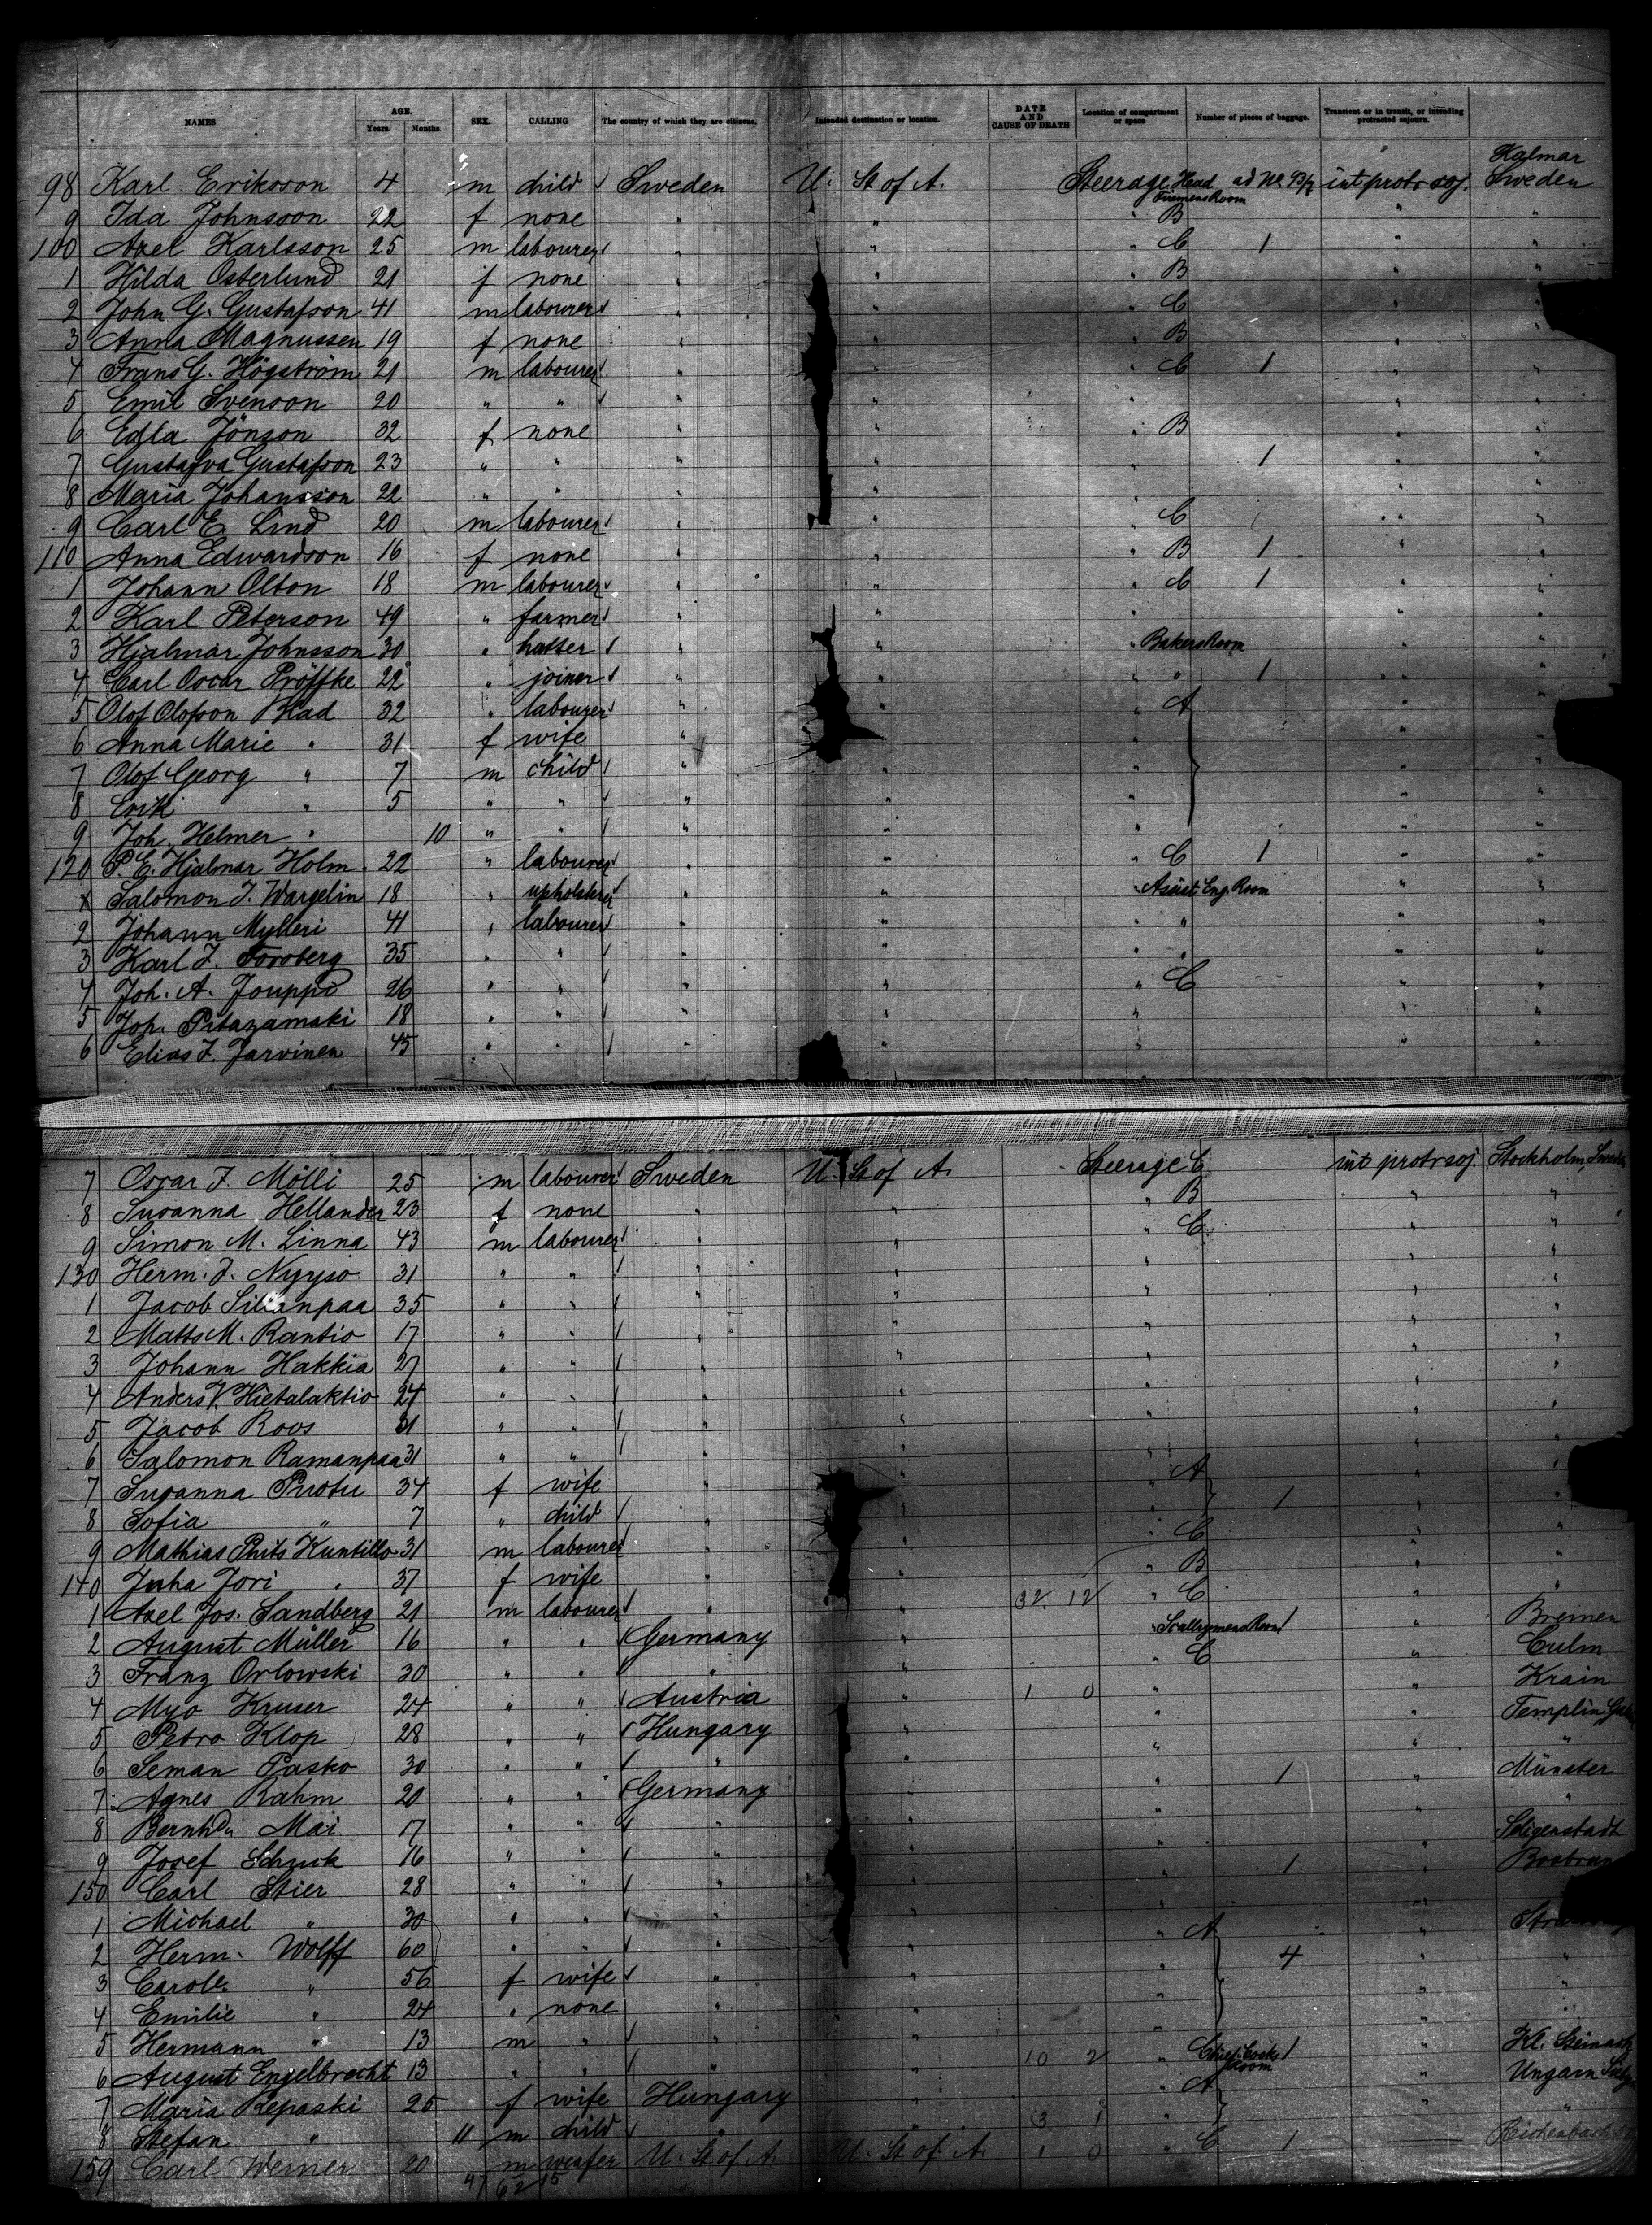 NAMES AGE. Years. Months. SEX. CALLING The country of which they are citizens. Intended destination or location. DATE AND CAUSE OF DEATH Location of compartment or space Number of pieces of baggage. Transient or in transit, or intending protracted sojourn.
98 Karl Erikson 4 m child Sweden U. St of A. Steerage Head Firemens Room int protr soj. Kalmar Sweden
9 Ida Johnsson 22 f none " " " B " "
100 Axel Karlsson 25 m labourer " " " C 1 " "
1 Hilda Osterlund 21 f none " " " B " "
2 John G. Gustafson 41 m labourer " " " C " "
3 Anna Magnussen 19 f none " " " B " "
4 Frans G. Högström 21 m labourer " " " C 1 " "
5 Emil Svenson 20 " " " " " " "
6 Edla Jönson 32 f none " " " B " "
7 Gustafva Gustafson 23 " " " " " 1 " "
8 Maria Johansson 22 " " " " " "
9 Carl E. Lind 20 m labourer " " " C " "
110 Anna Edwardson 16 f none " " " B 1 " "
1 Johann Olton 18 m labourer " " " C 1 " "
2 Karl Peterson 49 " farmer " " " " "
3 Hjalmar Johnsson 30 " hatter " " " Bakers Room " "
4 Carl Oscar Pröffke 22 " joiner " " " " 1 " "
5 Olof Olofson Blad 32 " labourer " " " A " "
6 Anna Marie " 31 f wife " " " " "
7 Olof Georg " 7 m child " " " " "
8 Erik " 5 " " " " " " "
9 Joh. Helmer " 10 " " " " " " "
120 P. E. Hjalmar Holm 22 " labourer " " " C 1 " "
Salomon J. Wargelin 18 " upholsterer " " " Assist. Eng. Room " "
2 Johann Mylleri 41 " labourer " " " " " "
3 Karl J. Forsberg 35 " " " " " " " "
4 Joh. A. Jouppi 26 " " " " " C " "
5 Joh. Pitazamaki 18 " " " " " " "
6 Elias J. Jarvinen 45 " " " " " " "
7 Oscar J. Mölli 25 m labourer Sweden U. St of A. Steerage C int protr soj. Stockholm, Sweden
8 Susanna Hellander 23 f none " " " B " "
9 Simon M. Linna 43 m labourer " " " C " "
130 Herm. J. 31 " " " " " " "
1 Jacob 35 " " " " " " "
2 Matts M. Rantio 17 " " " " " " "
3 Johann Hakkia 27 " " " " " " "
4 Anders V. Hietalaktio 24 " " " " " " "
5 Jacob Roos 31 " " " " " " "
6 Salomon Ramanpaa 31 " " " " " " "
7 Susanna Puotu 34 f wife " " " A " "
8 Sofia " 7 " child " " " 1 " "
9 Mathias Kuntillo 31 m labourer " " " C " "
140 Juha Jori 37 f wife " " " B " "
1 Axel Jos. Sandberg 21 m labourer " " 32 12 " C " "
2 August Müller 16 " " Germany " " Scullerymens Room 1 " Bremen
3 Franz Orlowski 30 " " " " " C " Culm
4 Myo Kruser 24 " " Austria " 1 0 " " Krain
5 Petro Klop 28 " " Hungary " " " Templin
6 Seman Pasko 30 " " " " " " "
7 Agnes Rahm 20 " " Germany " " 1 " Münster
8 Bernhd. Mai 17 " " " " " "
9 Josef Schuck 16 " " " " " Seligenstadt
150 Carl Stier 28 " " " " " 1 "
1 Michael " 30 " " " " "
2 Herm. Wolff 60 " " " " " A "
3 Carole " 56 f wife " " " 4 " "
4 Emilie " 24 " none " " " " "
5 Hermann " 13 m " " " " " "
6 August Engelbrecht 13 " " " " 10 2 " Chief Cooks Room 1 "
7 Maria Repaski 25 f wife Hungary " " A " Ungarn
8 Stefan " 11 m child " " 3 1 " " "
159 Carl Werner 20 m weafer U. St of A. U. St of A. 1 0 " C 1 Reichenbach
47 62 15